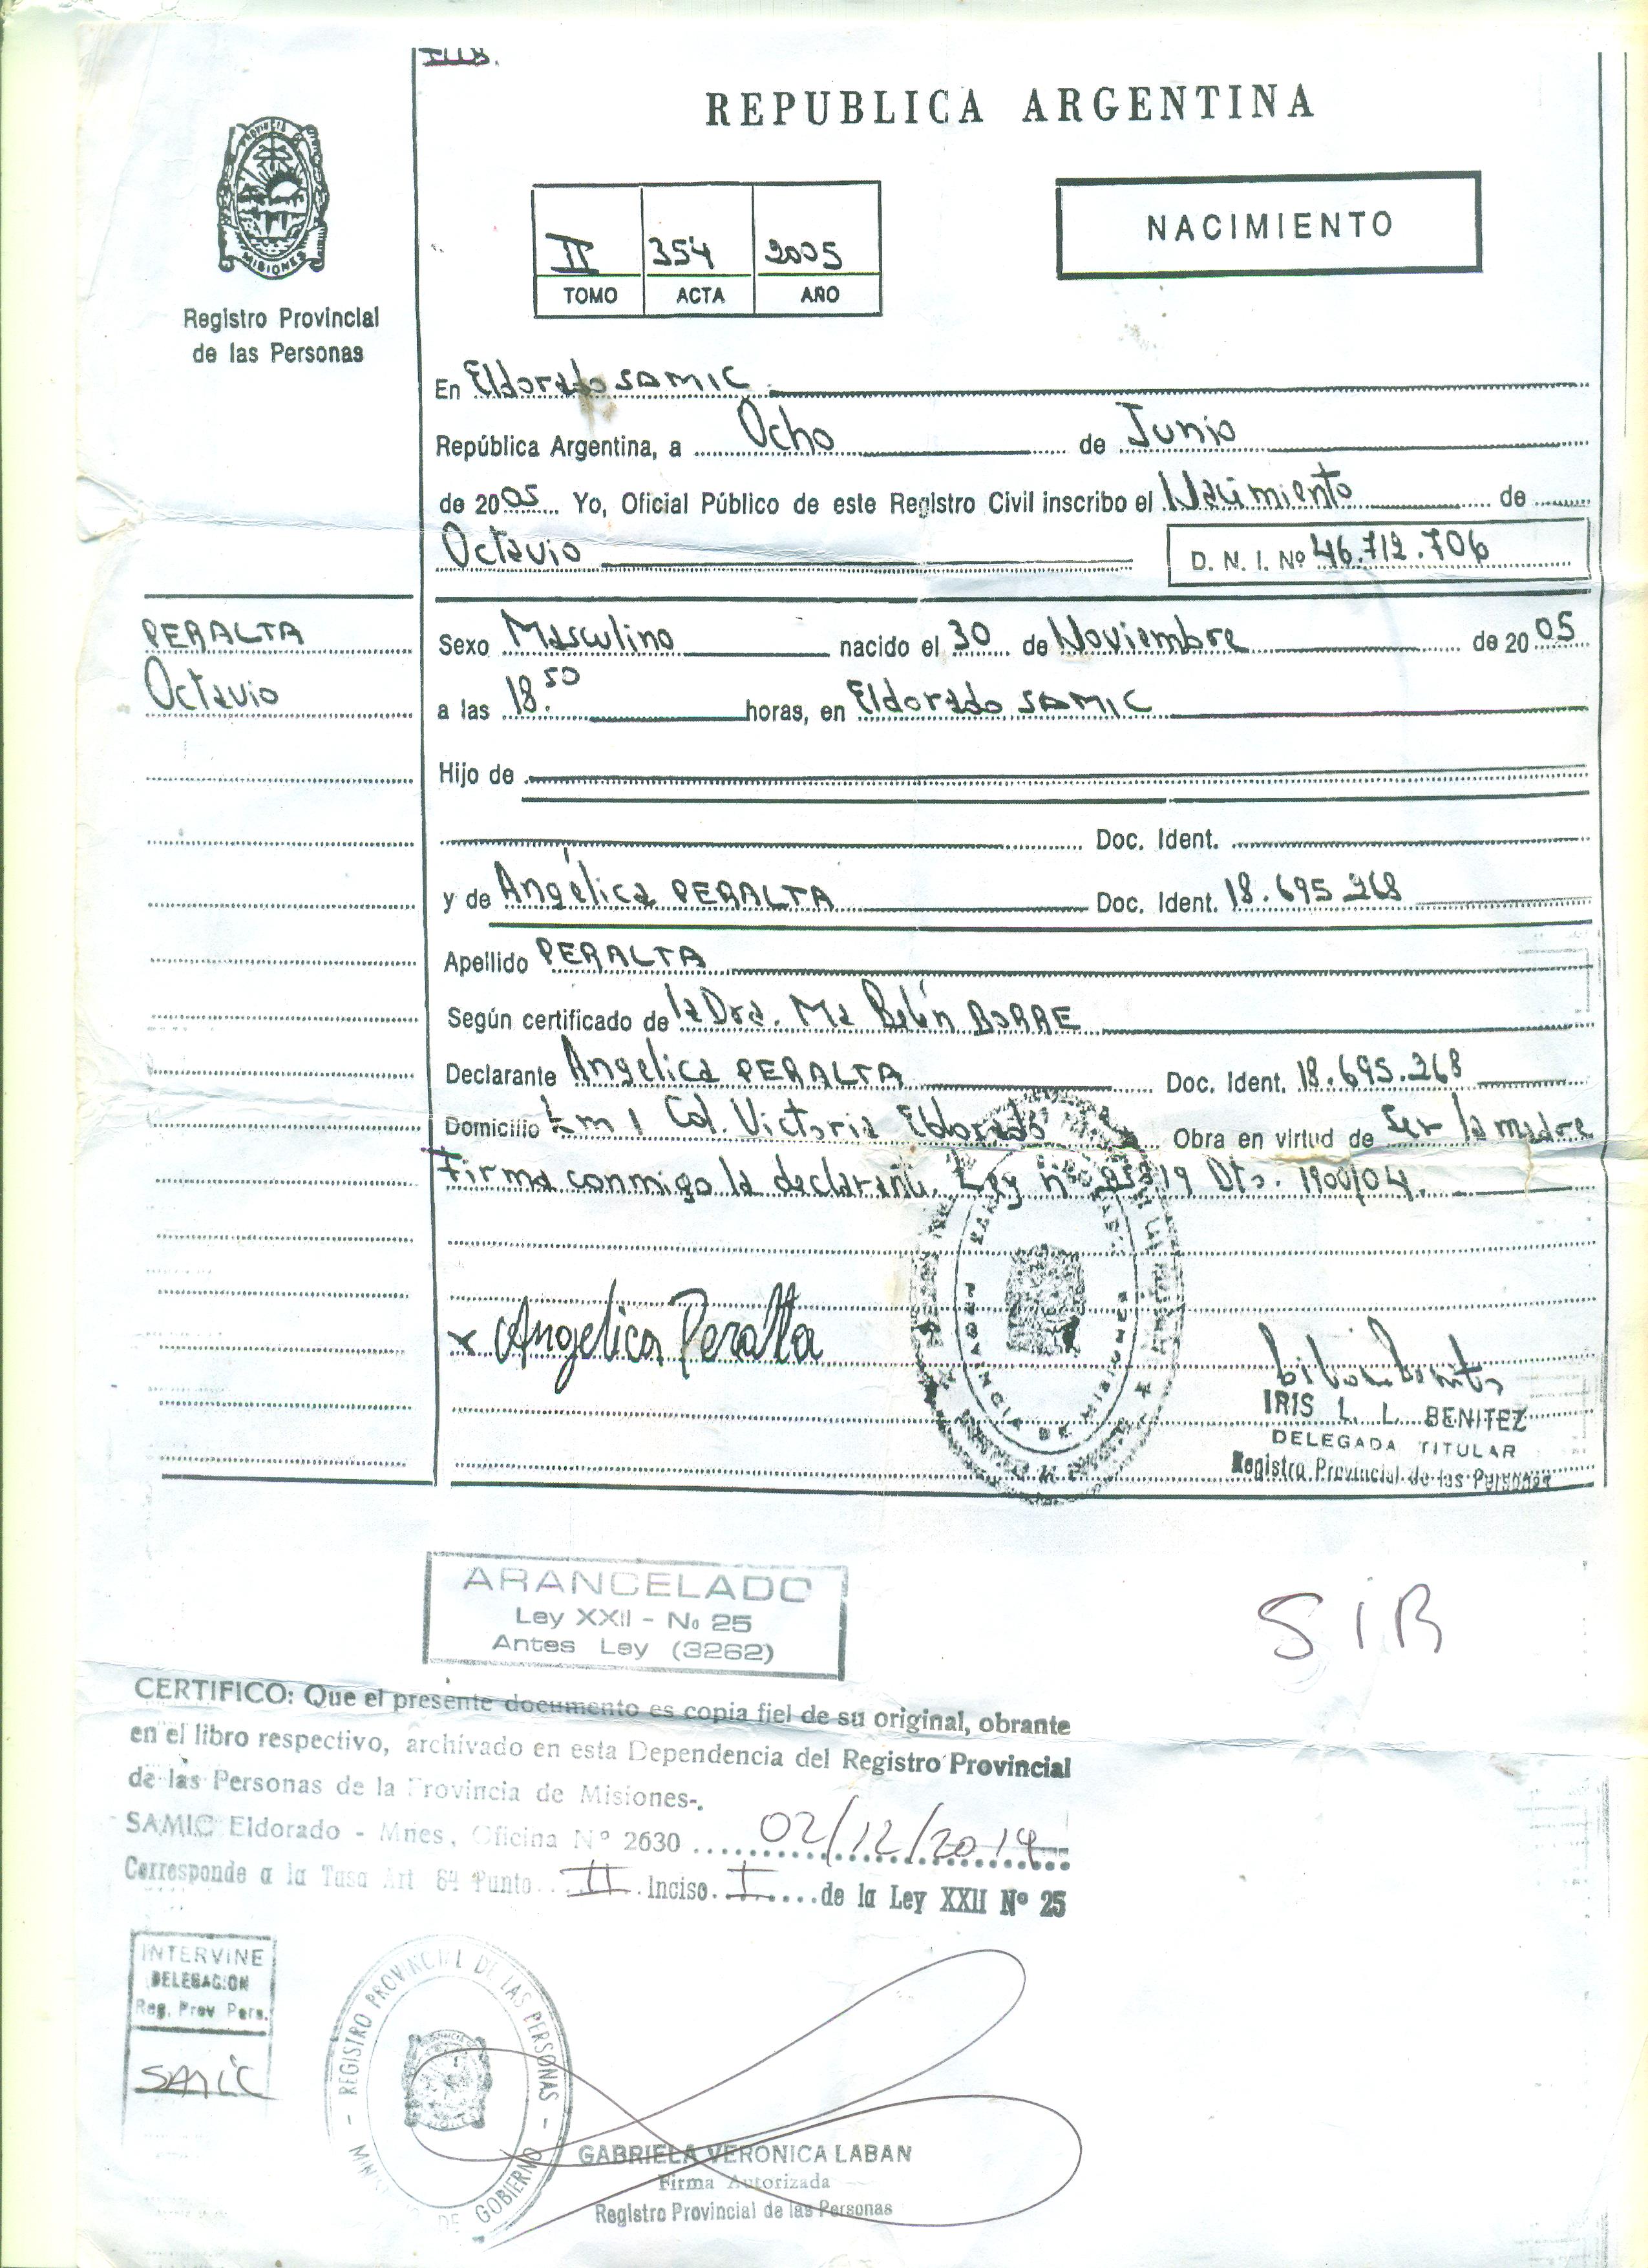 REPUBLICA ARGENTINA
MISIONES
Registro Provincial
de las Personas
II 354 2005
TOMO ACTA AÑO
NACIMIENTO
En Eldorado SAMIC
República Argentina, a Ocho de Junio
de 2005 Yo, Oficial Público de este Registro Civil inscribo el Nacimiento de
Octavio D. N. I. Nº 46.712.706
PERALTA
Octavio
Sexo Masculino nacido el 30 de Noviembre de 2005
a las 18.50 horas, en Eldorado SAMIC
Hijo de
Doc. Ident.
y de Angélica PERALTA Doc. Ident. 18.695.268
Apellido PERALTA
Según certificado de la Dra. Ma Belén BORRE
Declarante Angelica PERALTA Doc. Ident. 18.695.268
Domicilio km 1 Col. Victoria Eldorado Obra en virtud de Ser la madre
Firma conmigo la declarante. Ley nº 19 Dto. 1900/04.
PROVINCIA DE MISIONES
x Angelica Peralta
IRIS L. L. BENITEZ
DELEGADA TITULAR
Registro Provincial de las Personas
ARANCELADO
Ley XXII - No 25
Antes Ley (3262)
SIR
CERTIFICO: Que el presente documento es copia fiel de su original, obrante
en el libro respectivo, archivado en esta Dependencia del Registro Provincial
de las Personas de la Provincia de Misiones-.
SAMIC Eldorado - Mnes, Oficina Nº 2630 02/12/2014
Corresponde a la Tasa Art 64 Punto II Inciso I de la Ley XXII Nº 25
INTERVINE
DELEGACION
Reg. Prov Pers.
SAMIC
REGISTRO PROVINCIAL DE LAS PERSONAS - MINISTERIO DE GOBIERNO -
GABRIELA VERONICA LABAN
Firma Autorizada
Registro Provincial de las Personas